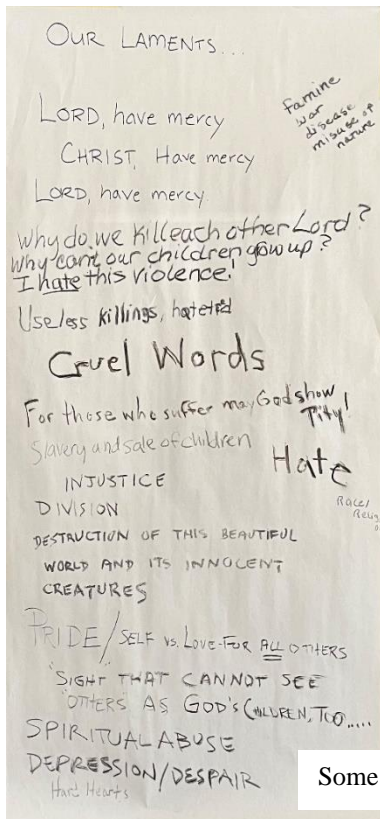 OUR LAMENTS...
famine
war
disease
misuse of
nature
LORD, have mercy
CHRIST, Have mercy
LORD, have mercy
Why do we kill each other Lord?
Why can't our children grow up?
I hate this violence!
Useless killings, hatred
Cruel Words
For those who suffer may God show
Pity!
Slavery and sale of children
Hate
INJUSTICE
Race/
DIVISION
DESTRUCTION OF THIS BEAUTIFUL
WORLD AND ITS INNOCENT
CREATURES
PRIDE/SELF vs. LOVE-FOR ALL OTHERS
"SIGHT THAT CANNOT SEE
"OTHERS" AS GOD'S CHILDREN, TOO.....
SPIRITUAL ABUSE
DEPRESSION/DESPAIR
Hard Hearts
Some